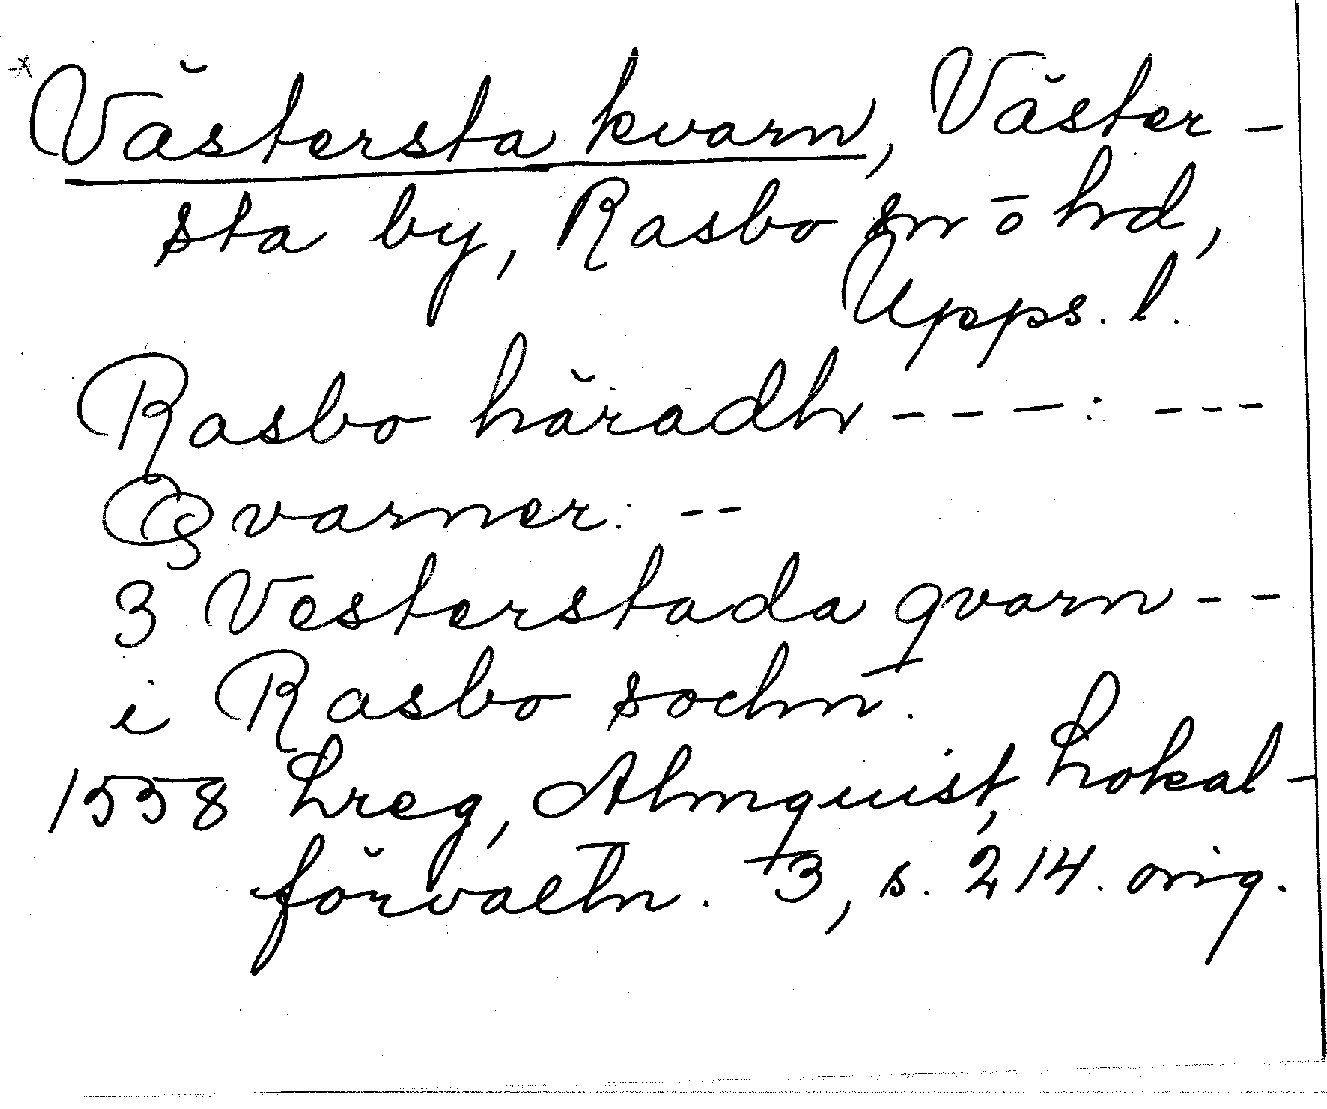 Västersta kvarn, Väster-
sta by, Rasbo sn o hd,
Upps. l.
Rasbo häradh - - - : - - -
Qvarner: - -
3 Vesterstada qvarn - -
i Rasbo sochn.
1558 Lreg, Almquist, Lokal-
förvaltn. 3, s. 214. orig.